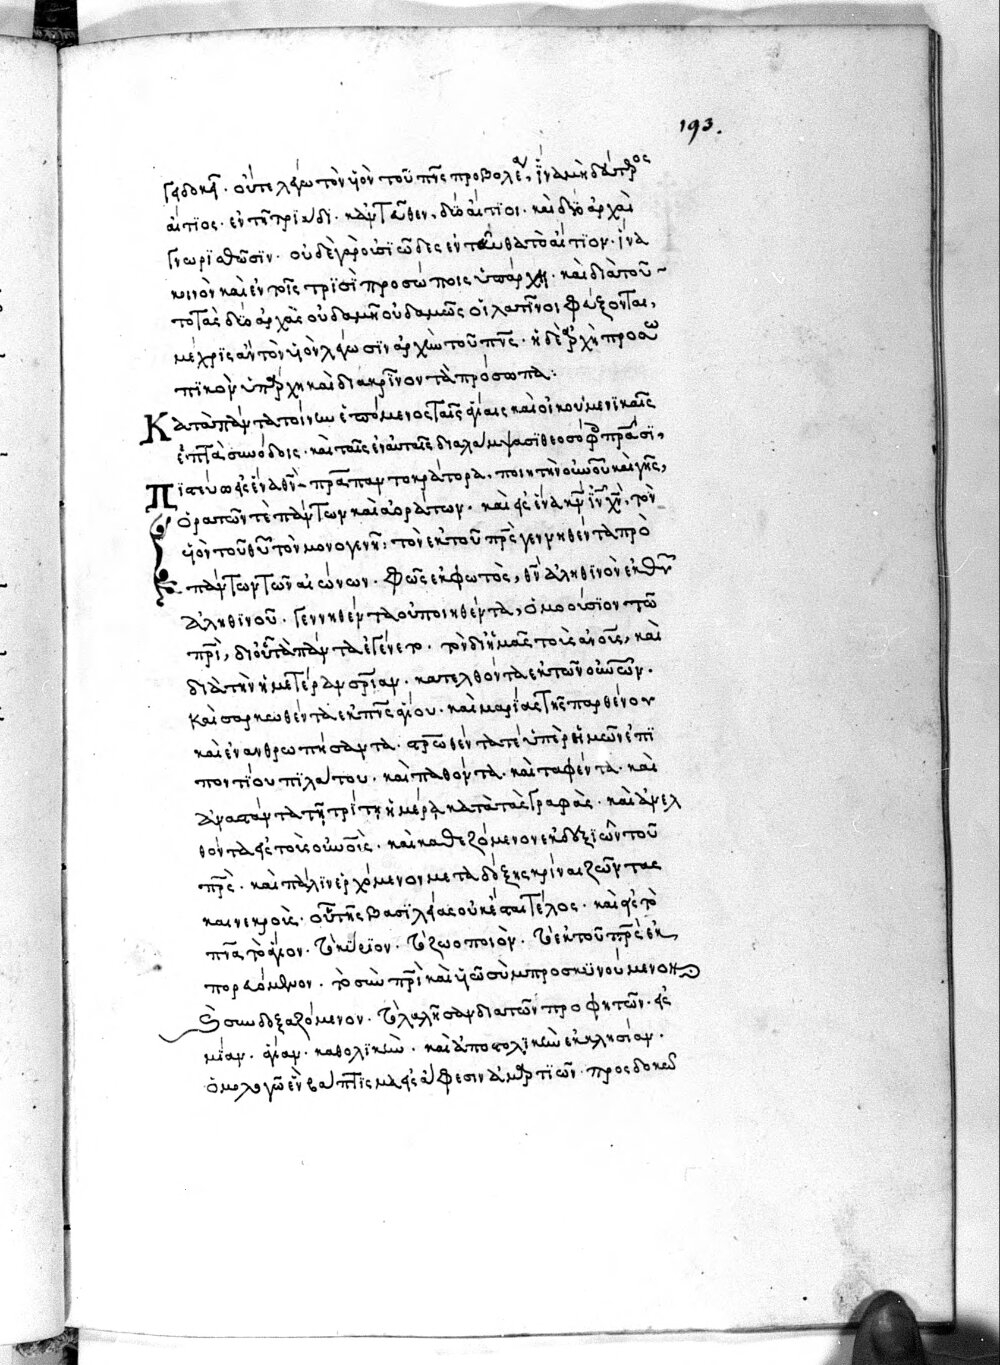 193.
οὔτε λέγω τὸν υἱὸν τοῦ πνς προβολέα, ἵνα μὴ δεύτερος
αἴτιος ἐν τῆ τριάδι κἀντεῦθεν, δύο αἴτιοι καὶ δύο ἀρχαὶ
γνωρισθῶσιν. οὐ δὲ γὰρ οὐσιῶδες ἐνταῦθα τὸ αἴτιον. ἵνα
κοινὸν καὶ ἐν τοῖς τρισὶ προσώποις ὑπάρχη. καὶ διὰ τοῦ
το τὰς δύο ἀρχὰς οὐδαμῆ οὐδαμῶς οἱ λατῖνοι φεύξονται,
μέχρις ἂν τὸν υἱὸν λέγωσιν ἀρχὴν τοῦ πνς. ἡ δὲ ἀρχὴ προσω
πικὸν ὑπάρχη καὶ διακρῖνον τὰ πρόσωπα.
Κατὰ πάντα τοίνυν ἑπόμενος ταῖς ἁγίαις καὶ οἰκουμενικαῖς
ἑπτὰ συνόδοις. καὶ ταῖς ἐν αὐταῖς διαλάμψασι θεοσόφοις πρασι,
Πιστεύω εἰς ἕνα θν πρα παντοκράτορα. ποιητὴν οὐνοῦ καὶ γῆς,
ὁρατῶν τὲ πάντων καὶ ἀοράτων. καὶ εἰς ἕνα κν ιν χν, τὸν
υἱὸν τοῦ θυ τὸν μονογενῆ, τὸν ἐκ τοῦ πρς γεννηθέντα πρὸ
πάντων τῶν αἰώνων. φῶς ἐκ φωτὸς, θν ἀληθινὸν ἐκ θυ
ἀληθινοῦ. γεννηθέντα οὐ ποιηθέντα, ὁμοούσιον τῶ
πρι, δι οὗ τὰ πάντα ἐγένετο. τὸν δι ἡμᾶς τοὺς ἀνους, καὶ
διὰ τὴν ἡμετέραν σριαν. κατελθόντα ἐκ τῶν οὐνῶν.
καὶ σαρκωθέντα ἐκ πνς ἁγίου. καὶ μαρίας τῆς παρθένου
καὶ ἐνανθρωπήσαντα. σρωθέντα τε ὑπὲρ ἡμῶν ἐπὶ
ποντίου πιλάτου. καὶ παθόντα. καὶ ταφέντα. καὶ
ἀναστάντα τῆ τρίτη ἡμέρα κατὰ τὰς γραφάς. καὶ ἀνελ
θόντα εἰς τοὺς οὐνοὺς. καὶ καθεζόμενον ἐκ δεξιῶν τοῦ
πρς. καὶ πάλιν ἐρχόμενον μετὰ δόξης κρῖναι ζῶντας
καὶ νεκροὺς. οὗ τῆς βασιλείας οὐκ ἔσται τέλος. καὶ εἰς τὸ
πνα τὸ ἅγιον. τὸ κύριον. τὸ ζωοποιὸν. τὸ ἐκ τοῦ πρς ἐκ
πορευόμενον. τὸ σὺν πρι καὶ υἱῶ συμπροσκυνούμενον
καὶ συνδοξαζόμενον. τὸ λαλῆσαν διὰ τῶν προφητῶν. εἰς
μίαν. ἁγίαν. καθολικὴν. καὶ ἀποστολικὴν ἐκκλησίαν.
ὁμολογῶ ἓν βάπτισμα εἰς ἄφεσιν ἁμαρτιῶν. προσδοκῶ